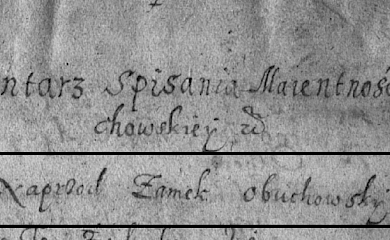 ntarz Spisania Maientnośc
chowskiey
Naprzod Zamek obuchowsky